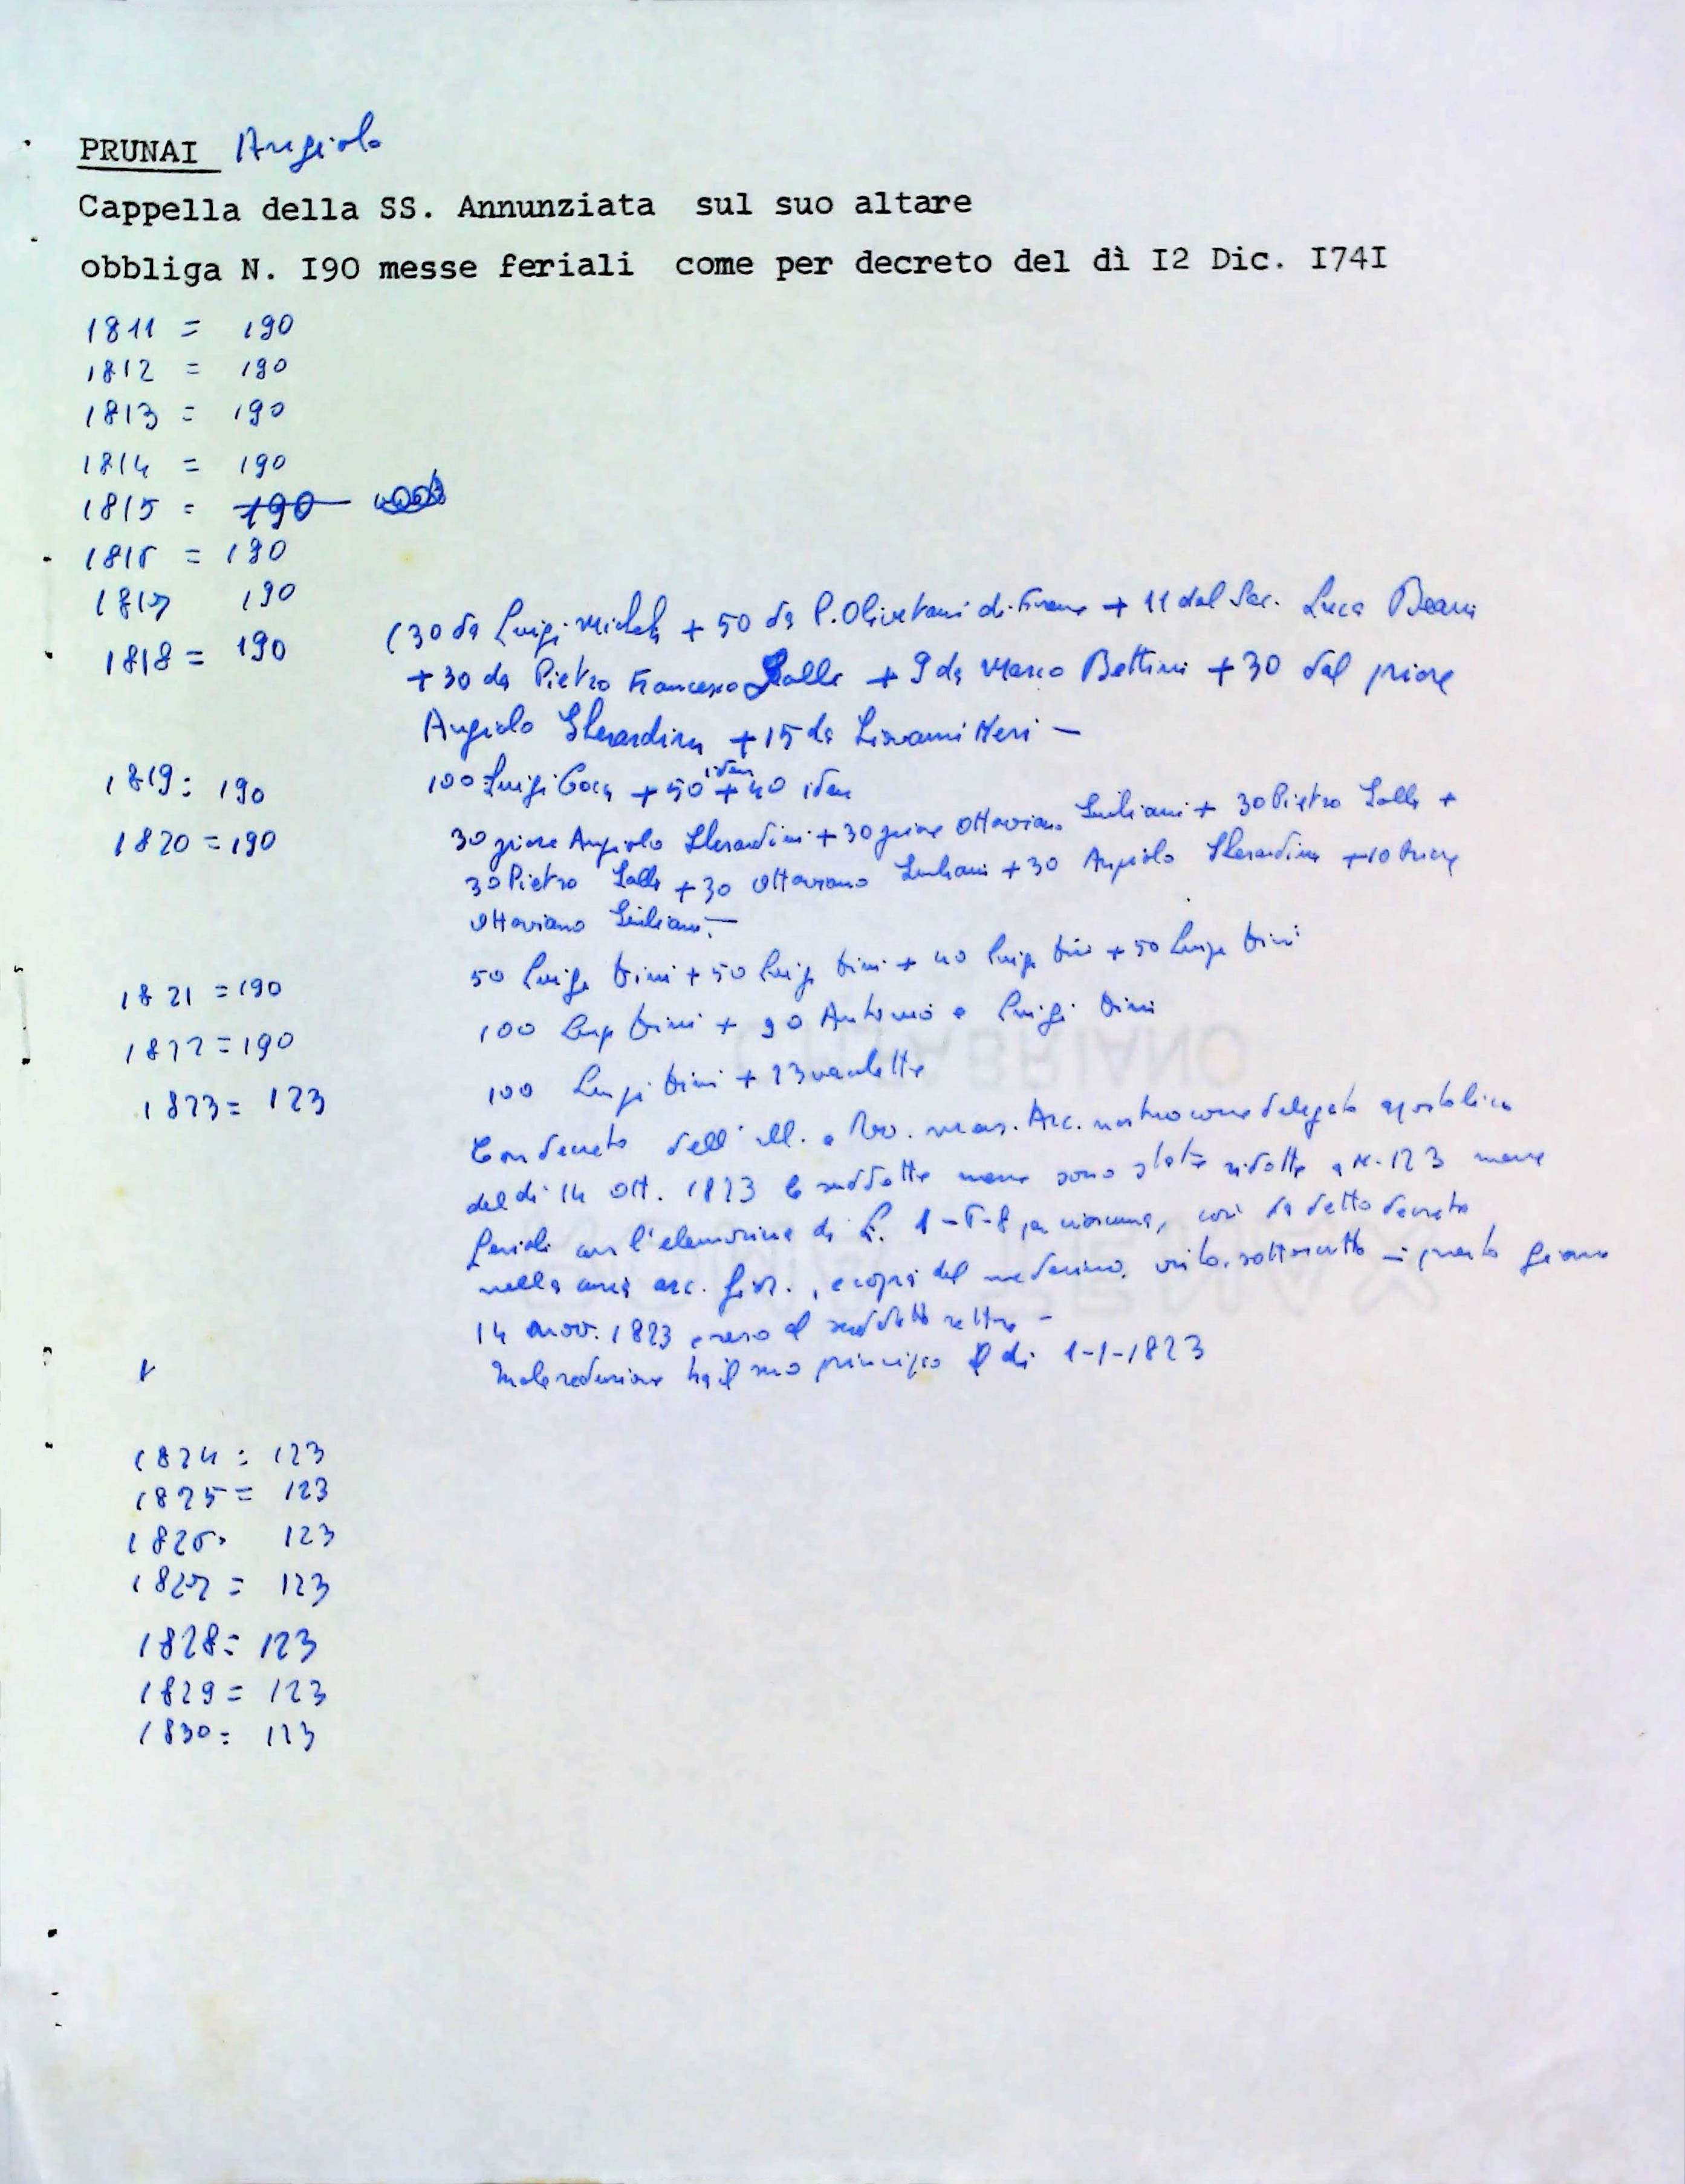 PRUNAI Angiolo
Cappella della SS. Annunziata sul suo altare
obbliga N. I90 messe feriali come per decreto del dì I2 Dic. I74I
1811 = 190
1812 = 190
1813 = 190
1814 = 190
1815 = 190
1816 = 190
1817 190
1818 = 190 (30 da Luigi Micheli + 50 da P. Olivetani di Firenze + 11 dal Sac. Luca
+ 30 da Pietro Francesco Galli + 9 da Marco Bettini + 30 dal priore
Angiolo Gherardini + 15 da Giovanni Neri —
1819 = 190 100 Luigi + 50 idem + 40 idem
1820 = 190 30 priore Angiolo Gherardini + 30 priore Ottaviano Giuliani + 30 Pietro Galli +
30 Pietro Galli + 30 Ottaviano Giuliani + 30 Angiolo Gherardini + 10 priore
Ottaviano Giuliani. —
1821 = 190 50 Luigi Dini + 50 Luigi Dini + 40 Luigi Dini + 50 Luigi Dini
1822 = 190 100 Luigi Dini + 90 Antonio e Luigi Dini
1823 = 123 100 Luigi Dini + 23
Con decreto dell' Ill. e Rev. Mons. Arc. nostro come delegato apostolico
del dì 14 ott. 1823 le suddette messe sono state ridotte a N. 123 messe
feriali con l'elemosina di L. 1-6-8 per ciascuna, così da detto decreto
nella arc. , e copia del medesimo, sottoscritto questo giorno
14 nov. 1823 presso il suddetto rettore -
riduzione ha il suo principio il dì 1-1-1823
1824 = 123
1825 = 123
1826 = 123
1827 = 123
1828 = 123
1829 = 123
1830 = 123